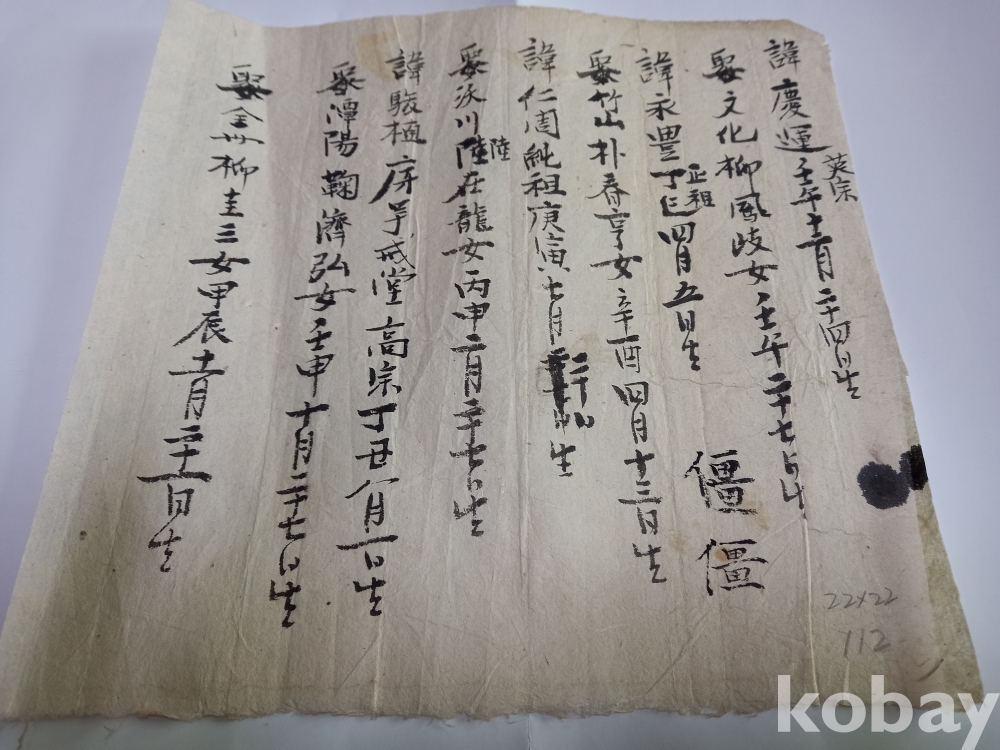 諱慶運英宗壬午十二月二十四日生
娶文化柳鳳岐女壬午二十七日生
諱永豊正祖丁巳四月五日生
僵僵
娶竹山朴春亨女辛酉四月十三日生
諱仁周純祖庚寅七月二十日生
娶沃川陸在龍女丙申二月二十七日生
陸
諱駿植 戒堂高宗丁丑八月一日生
娶潭陽鞠濟弘女壬申十月二十七日生
娶全州柳圭三女甲辰十一月二十一日生
22x22
112
kobay